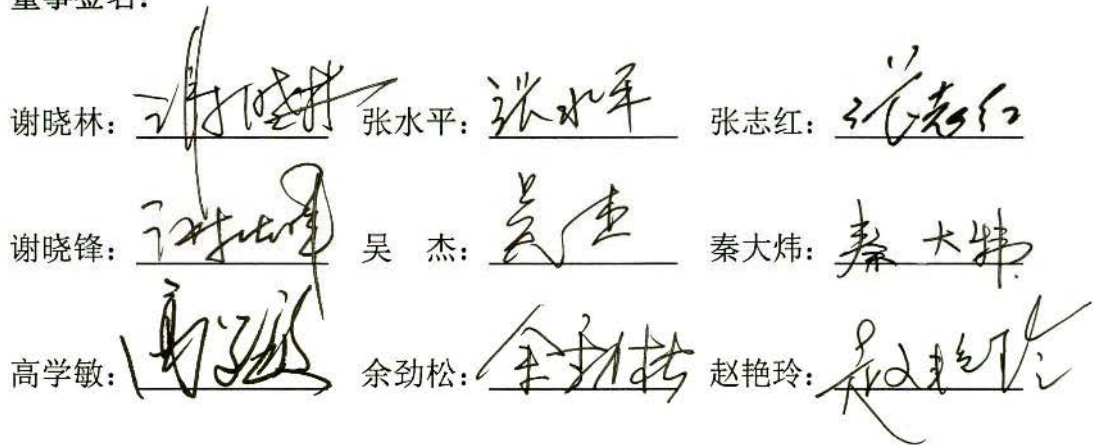 董事签名：
谢晓林：谢晓林 张水平：张水平 张志红：张志红
谢晓锋：谢晓锋 吴 杰：吴杰 秦大炜：秦大炜
高学敏：高学敏 余劲松：余劲松 赵艳玲：赵艳玲